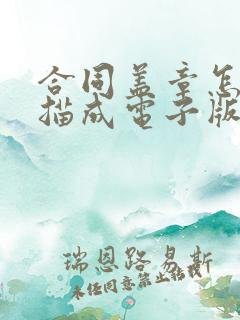 合同盖章怎
描成电子版
瑞恩路易斯
未经同意禁止转载